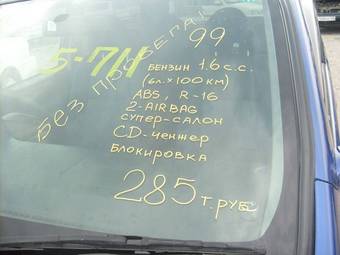 Без пробега 99
5-7Л
бензин 1.6 с.с.
(6л. х 100км)
ABS, R-16
2-AIRBAG
супер-салон
CD-ченжер
блокировка
285 т.руб